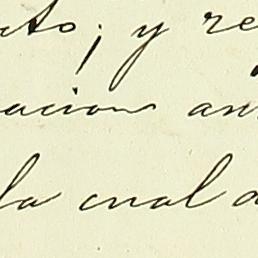 cto; y re
acion an
la cual a